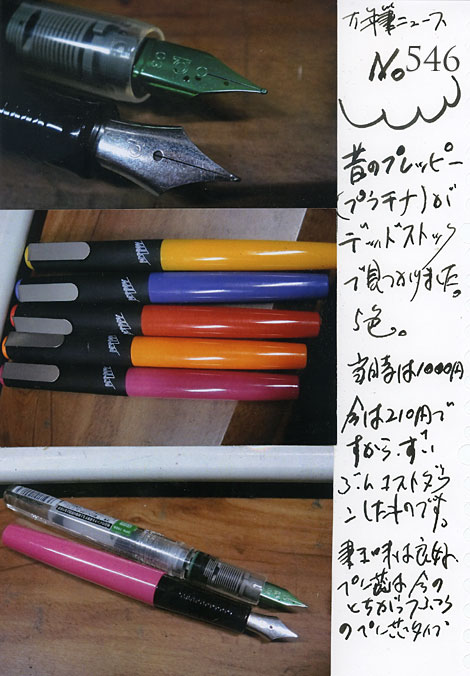 万年筆ニュース
No 546
昔のプレッピー
(プラチナ)が
デッドストック
で見つかりました。
5色。
当時は1000円
今は210円で
すから、ずい
ぶんコストダウ
ンしたものです。
書き味は良好、
ペン芯は今の
とちがってふつう
のペン芯タイプ
03